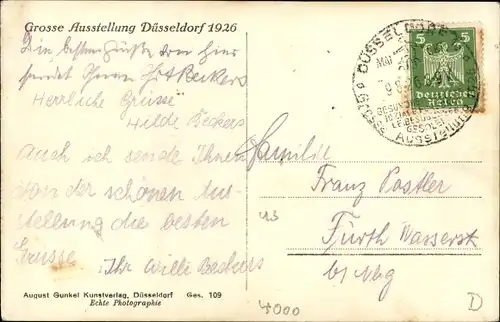 Grosse Ausstellung Düsseldorf 1926
Die besten Grüße von hier
sendet Ihnen Beckers
Herrliche Grüsse
Hilde Beckers
Auch ich sende Ihnen
von der schönen Aus-
stellung die besten
Grüsse
Ihr Willi Beckers
August Gunkel Kunstverlag, Düsseldorf Ges. 109
Echte Photographie
DÜSSELDORF
MAI
GESOLEI
Ausstellung
5 5
Deutsches
Reich
Familie
Franz Postler
Fürth
b/ Nbg
43
4000
D